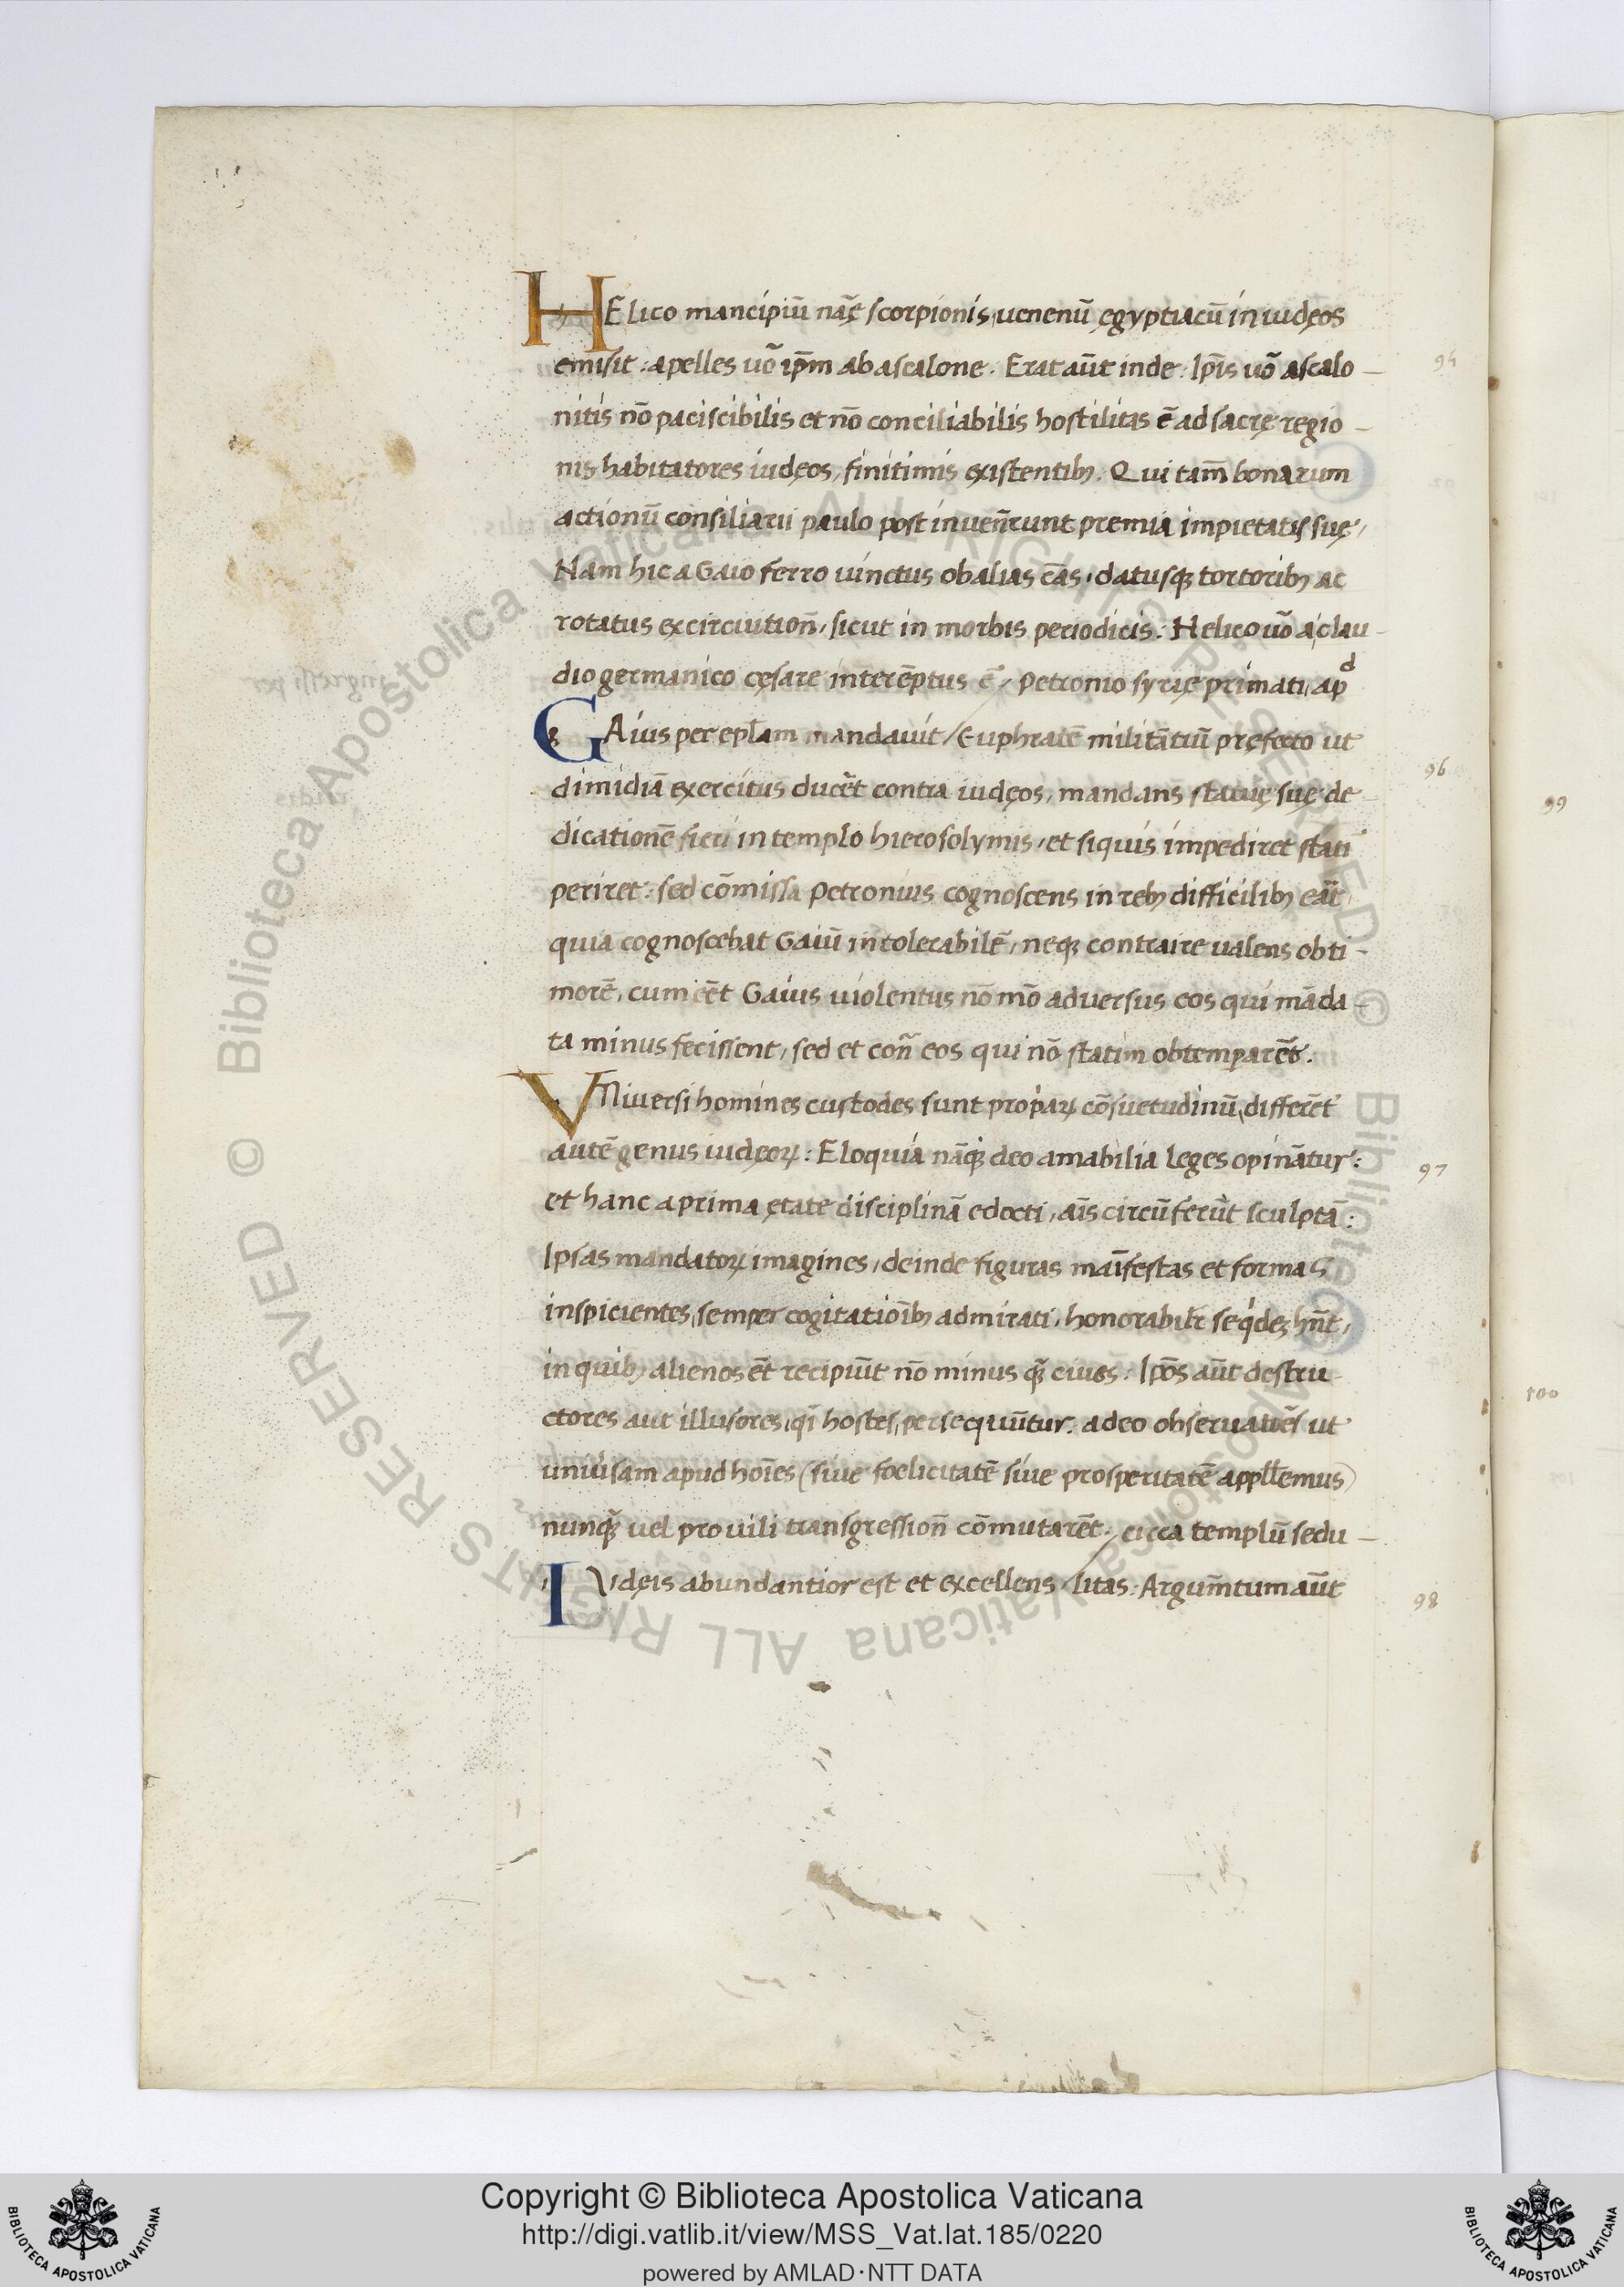 HElico mancipiū nāę scorpionis, uenenū ęgyptiacū in iudęos
emisit: apelles uō ip̄m ab ascalone. Erat aūt inde: Ip̄is uō ascalo-
nitis nō paciscibilis et nō conciliabilis hostilitas ē ad sacrę regio-
nis habitatores iudęos, finitimis existentibꝫ. Qui tam̄ bonarum
actionū consiliarii paulo post inuen̄runt premia impietatis suę,
Nam hic a Gaio ferro uinctus ob alias cās, datusqꝫ tortoribꝫ ac
rotatus ex circuition̄, sicut in morbis periodicis: Helico uō a clau-
dio germanico cęsare intērēptus ē, Petronio syrię primati, apᵈ
GAius per epl̄am mandauit / Euphratē militātiū pręfecto ut
dimidiā exercitus ducēt contra iudęos, mandans statuę suę de-
dicationē fieri in templo hierosolymis, et siquis impediret stati
periret: sed cōmissa Petronius cognoscens in rebꝫ difficilibꝫ eāt
quia cognoscebat Gaiū intolerabilē, neqꝫ contraire ualens obti-
morē, cum eēt Gaius uiolentus nō mō aduersus eos qui māda-
ta minus fecissent, sed et con̄ eos qui nō statim obtemparēt.
VNiuersi homines custodes sunt propiaꝝ cōsuetudinū, differēt
autē genus iudęoꝝ: Eloquia nāqꝫ deo amabilia leges opinātur:
et hanc a prima ętate disciplinā edocti, aīs circūferūt sculptā:
Ipsas mandatoꝝ imagines, deinde figuras maīfestas et formas
inspicientes, semper cogitatioībꝫ admirati, honorabilr̄ seqͥdeꝫ hn̄t,
in quibꝫ alienos ēt recipiūt nō minus qꝫ̄ ciues: Ipōs aūt destru
ctores aut illusores, qī hostes, persequūtur. adeo obseruatiēs ut
uniuisam apud hoīes (siue foelicitatē siue prosperitatē appll̄emus)
nunqꝫ̄ uel pro uili transgression̄ cōmutarēt. circa templū sedu-
IVdęis abundantior est et excellens / litas: Argum̄tum aūt
94
96
97
98
99
100
Copyright © Biblioteca Apostolica Vaticana
http://digi.vatlib.it/view/MSS_Vat.lat.185/0220
powered by AMLAD·NTT DATA